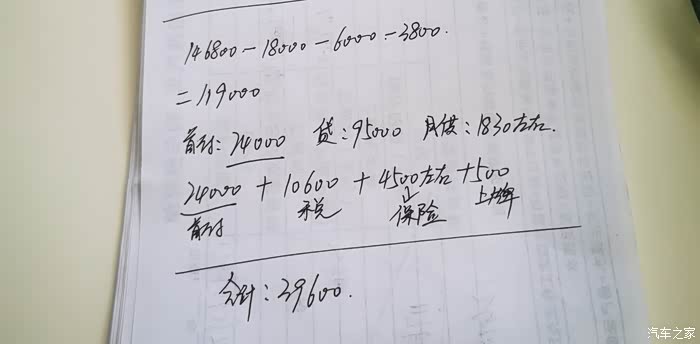 146800-18000-6000-3800.
=119000
首付:24000 贷:95000 月供:1830左右.
24000+10600+4500左右+500
首付 税 保险 上牌
合计:39600.
汽车之家